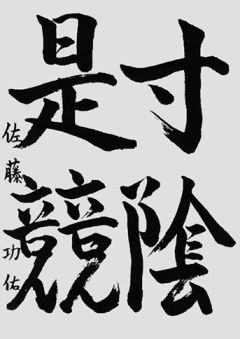 寸陰
是競
佐藤功佑